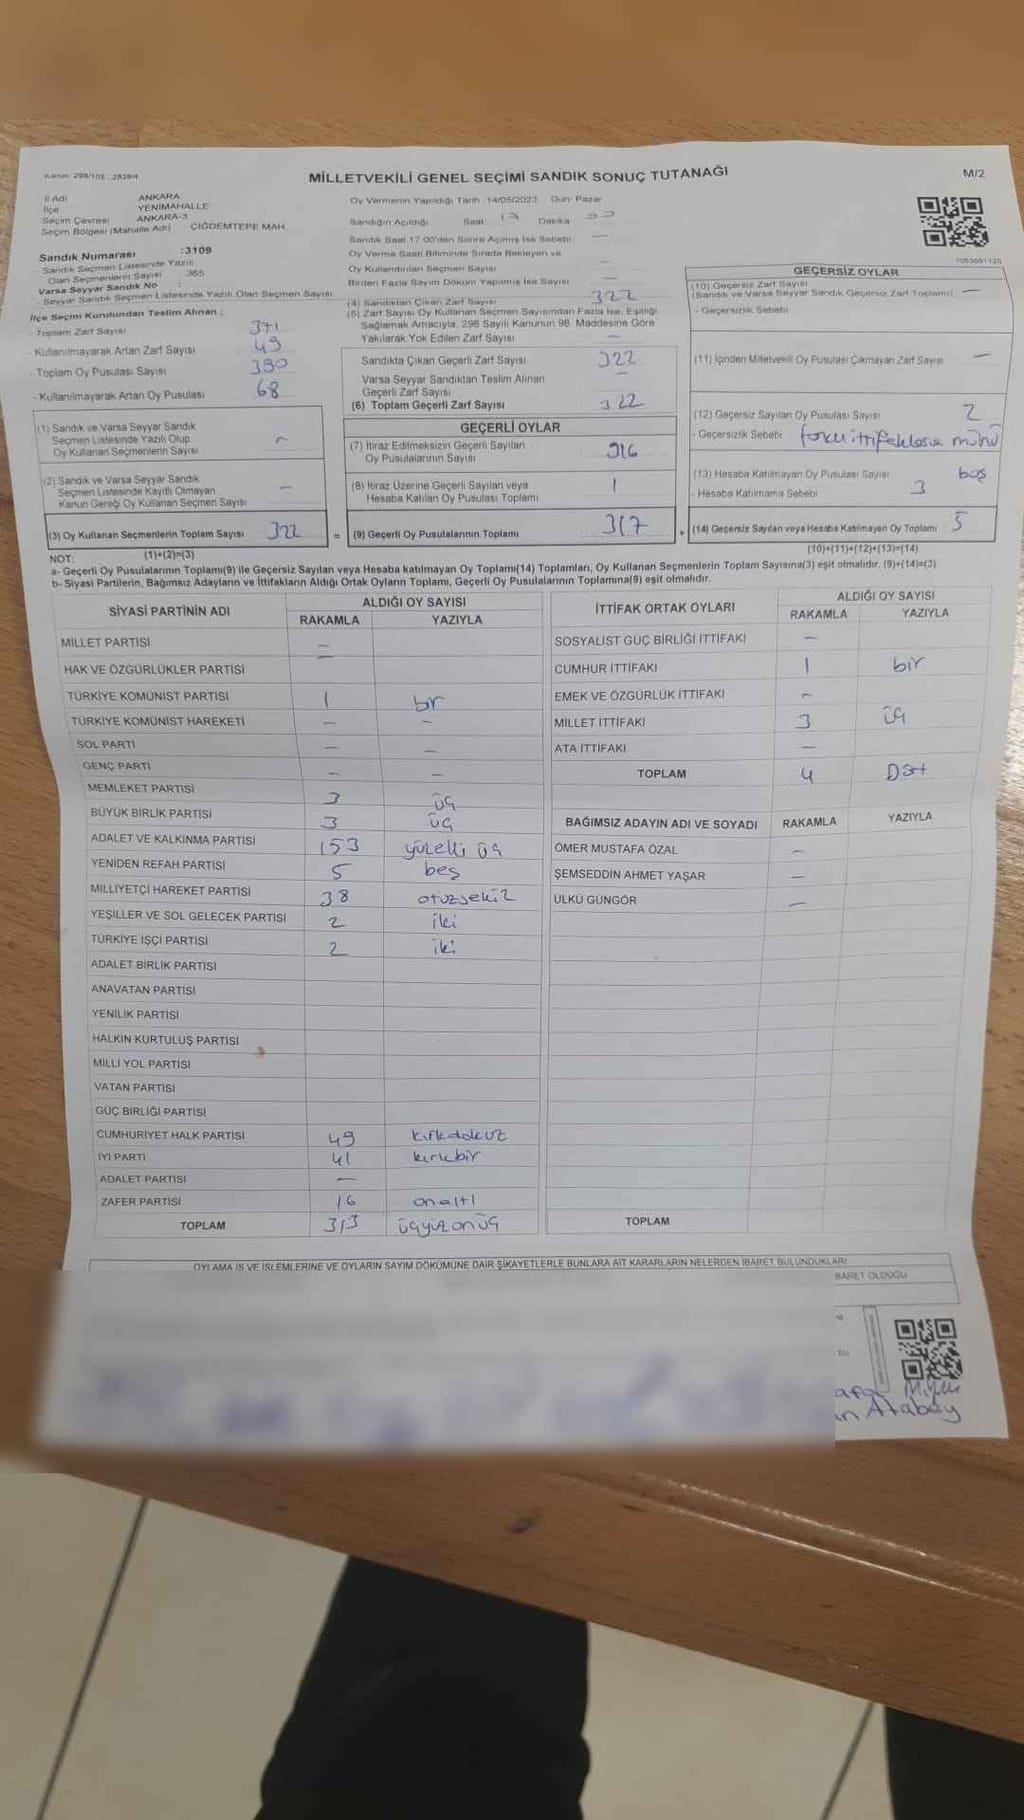 Kanun: 298/105 , 2839/4
MİLLETVEKİLİ GENEL SEÇİMİ SANDIK SONUÇ TUTANAĞI
M/2
İl Adı ANKARA
İlçe YENİMAHALLE
Seçim Çevresi ANKARA-3
Seçim Bölgesi (Mahalle Adı) ÇİĞDEMTEPE MAH.
Sandık Numarası :3109
- Sandık Seçmen Listesinde Yazılı
Olan Seçmenlerin Sayısı : 365
Varsa Seyyar Sandık No :
- Seyyar Sandık Seçmen Listesinde Yazılı Olan Seçmen Sayısı:
İlçe Seçim Kurulundan Teslim Alınan ;
- Toplam Zarf Sayısı 371
- Kullanılmayarak Artan Zarf Sayısı 49
- Toplam Oy Pusulası Sayısı 390
- Kullanılmayarak Artan Oy Pusulası 68
(1) Sandık ve Varsa Seyyar Sandık
Seçmen Listesinde Yazılı Olup
Oy Kullanan Seçmenlerin Sayısı –
(2) Sandık ve Varsa Seyyar Sandık
Seçmen Listesinde Kayıtlı Olmayan
Kanun Gereği Oy Kullanan Seçmen Sayısı –
(3) Oy Kullanan Seçmenlerin Toplam Sayısı 322 =
Oy Vermenin Yapıldığı Tarih :14/05/2023 Gün: Pazar
Sandığın Açıldığı Saat: 17 Dakika
Sandık Saat 17:00'den Sonra Açılmış İse Sebebi –
Oy Verme Saati Bitiminde Sırada Bekleyen ve
Oy Kullandırılan Seçmen Sayısı –
Birden Fazla Sayım Döküm Yapılmış İse Sayısı –
(4) Sandıktan Çıkan Zarf Sayısı 322
(5) Zarf Sayısı Oy Kullanan Seçmen Sayısından Fazla İse, Eşitliği
Sağlamak Amacıyla, 298 Sayılı Kanunun 98. Maddesine Göre
Yakılarak Yok Edilen Zarf Sayısı –
Sandıkta Çıkan Geçerli Zarf Sayısı 322
Varsa Seyyar Sandıktan Teslim Alınan
Geçerli Zarf Sayısı –
(6) Toplam Geçerli Zarf Sayısı 322
GEÇERLİ OYLAR
(7) İtiraz Edilmeksizin Geçerli Sayılan
Oy Pusulalarının Sayısı 316
(8) İtiraz Üzerine Geçerli Sayılan veya
Hesaba Katılan Oy Pusulası Toplamı 1
(9) Geçerli Oy Pusulalarının Toplamı 317 +
1053691120
GEÇERSİZ OYLAR
(10) Geçersiz Zarf Sayısı
(Sandık ve Varsa Seyyar Sandık Geçersiz Zarf Toplamı) –
- Geçersizlik Sebebi
(11) İçinden Milletvekili Oy Pusulası Çıkmayan Zarf Sayısı –
(12) Geçersiz Sayılan Oy Pusulası Sayısı 2
- Geçersizlik Sebebi
(13) Hesaba Katılmayan Oy Pusulası Sayısı boş
- Hesaba Katılmama Sebebi 3
(14) Geçersiz Sayılan veya Hesaba Katılmayan Oy Toplamı 5
NOT: (1)+(2)=(3)
(10)+(11)+(12)+(13)=(14)
a- Geçerli Oy Pusulalarının Toplamı(9) ile Geçersiz Sayılan veya Hesaba katılmayan Oy Toplamı(14) Toplamları, Oy Kullanan Seçmenlerin Toplam Sayısına(3) eşit olmalıdır. (9)+(14)=(3)
b- Siyasi Partilerin, Bağımsız Adayların ve İttifakların Aldığı Ortak Oyların Toplamı, Geçerli Oy Pusulalarının Toplamına(9) eşit olmalıdır.
SİYASİ PARTİNİN ADI ALDIĞI OY SAYISI
RAKAMLA YAZIYLA
MİLLET PARTİSİ –
HAK VE ÖZGÜRLÜKLER PARTİSİ
TÜRKİYE KOMÜNİST PARTİSİ 1 bir
TÜRKİYE KOMÜNİST HAREKETİ – –
SOL PARTİ – –
GENÇ PARTİ – –
MEMLEKET PARTİSİ 3 üç
BÜYÜK BİRLİK PARTİSİ 3 üç
ADALET VE KALKINMA PARTİSİ 153 yüzelli üç
YENİDEN REFAH PARTİSİ 5 beş
MİLLİYETÇİ HAREKET PARTİSİ 38 otuzsekiz
YEŞİLLER VE SOL GELECEK PARTİSİ 2 iki
TÜRKİYE İŞÇİ PARTİSİ 2 iki
ADALET BİRLİK PARTİSİ
ANAVATAN PARTİSİ
YENİLİK PARTİSİ
HALKIN KURTULUŞ PARTİSİ
MİLLİ YOL PARTİSİ
VATAN PARTİSİ
GÜÇ BİRLİĞİ PARTİSİ
CUMHURİYET HALK PARTİSİ 49 kırkdokuz
İYİ PARTİ 41 kırkbir
ADALET PARTİSİ –
ZAFER PARTİSİ 16 onaltı
TOPLAM 313 üçyüzonüç
İTTİFAK ORTAK OYLARI ALDIĞI OY SAYISI
RAKAMLA YAZIYLA
SOSYALİST GÜÇ BİRLİĞİ İTTİFAKI –
CUMHUR İTTİFAKI 1 bir
EMEK VE ÖZGÜRLÜK İTTİFAKI –
MİLLET İTTİFAKI 3 üç
ATA İTTİFAKI –
TOPLAM 4 Dört
BAĞIMSIZ ADAYIN ADI VE SOYADI RAKAMLA YAZIYLA
ÖMER MUSTAFA ÖZAL –
ŞEMSEDDİN AHMET YAŞAR –
ÜLKÜ GÜNGÖR –
TOPLAM
OYLAMA İŞ VE İŞLEMLERİNE VE OYLARIN SAYIM DÖKÜMÜNE DAİR ŞİKAYETLERLE BUNLARA AİT KARARLARIN NELERDEN İBARET BULUNDUKLARI
BARET OLDUĞU
Atabay